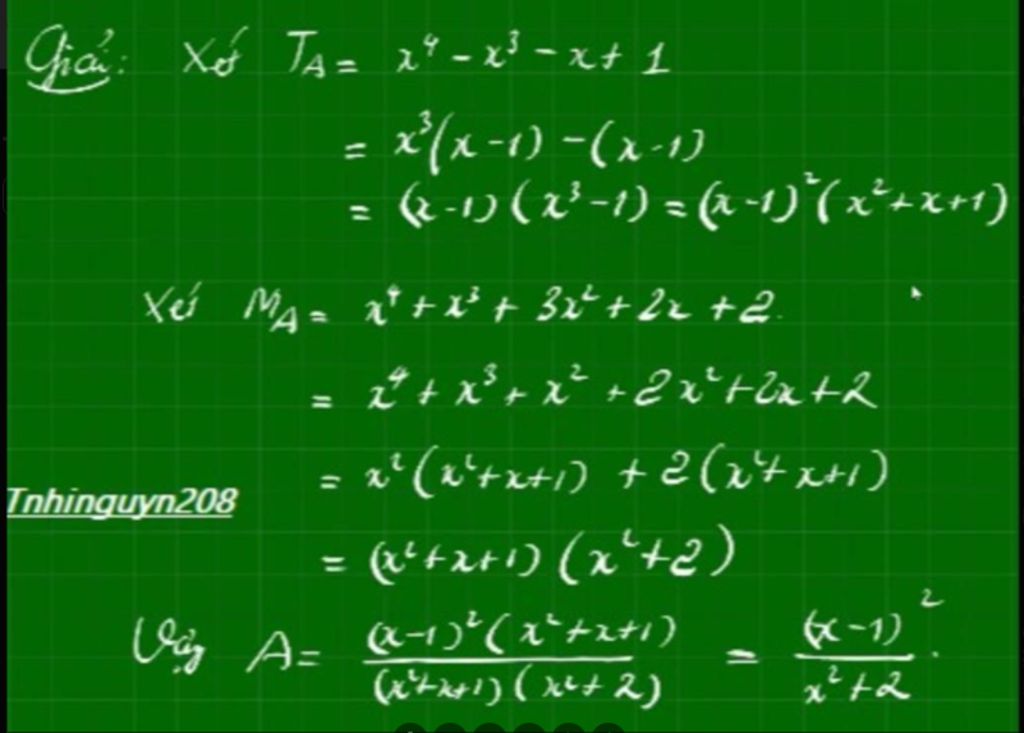 Giải: Xét T_A = x⁴ - x³ - x + 1
= x³(x-1) - (x-1)
= (x-1)(x³-1) = (x-1)²(x²+x+1)
Xét M_A = x⁴ + x³ + 3x² + 2x + 2.
= x⁴ + x³ + x² + 2x² + 2x + 2
= x²(x²+x+1) + 2(x²+x+1)
Tnhinguyn208
= (x²+x+1)(x²+2)
Vậy A = \frac{(x-1)²(x²+x+1)}{(x²+x+1)(x²+2)} = \frac{(x-1)²}{x²+2}.